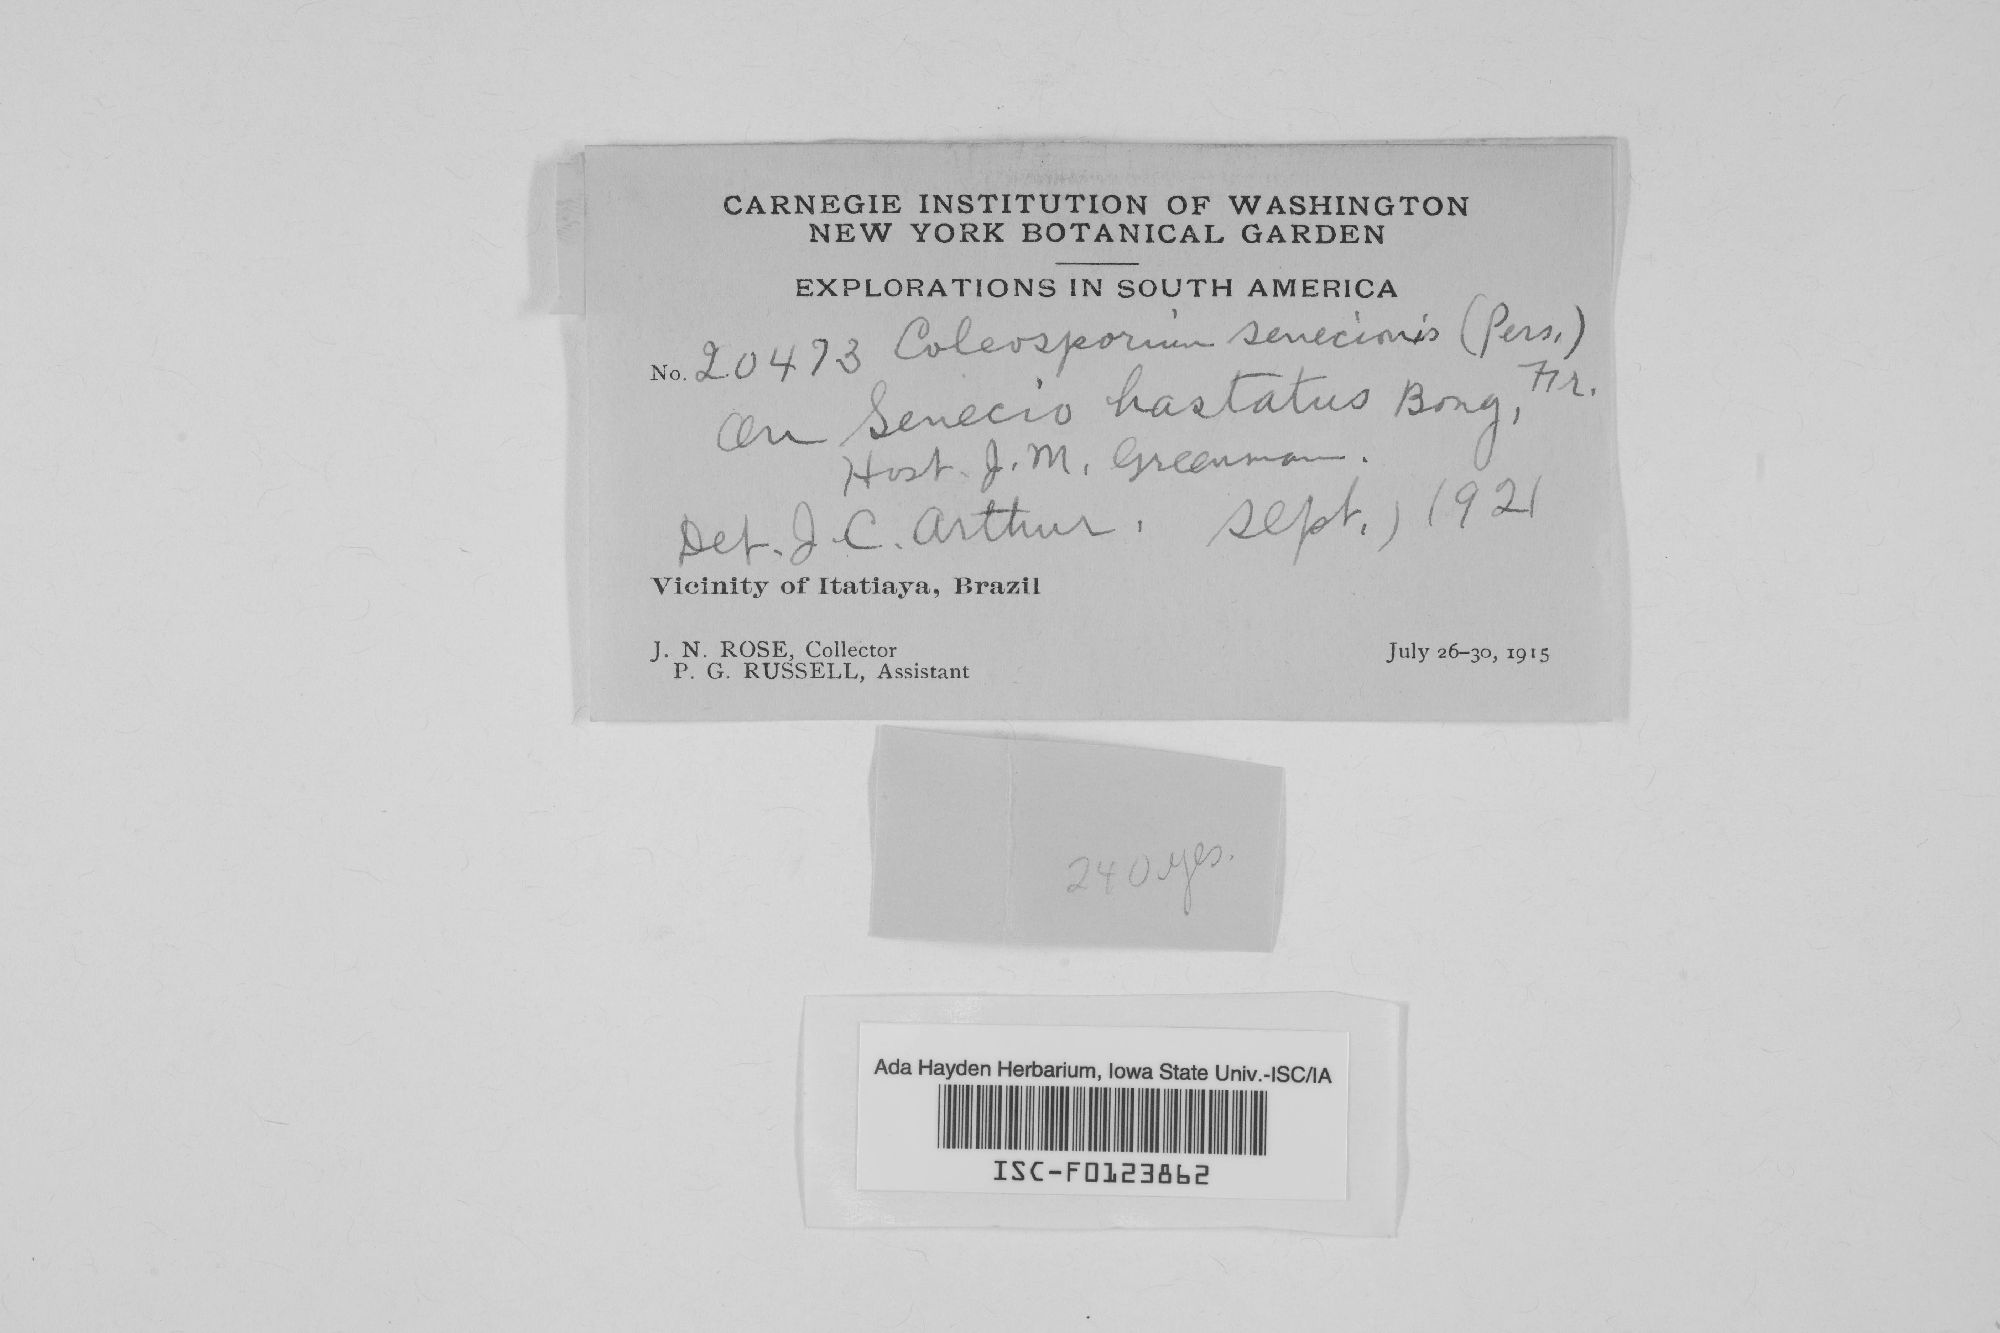 CARNEGIE INSTITUTION OF WASHINGTON
NEW YORK BOTANICAL GARDEN
EXPLORATIONS IN SOUTH AMERICA
No. 20473 Coleosporium senecionis (Pers.)
Fr.
On Senecio hastatus Bong.,
Host. J. M. Greenman.
Det. J. C. Arthur. Sept., 1921
Vicinity of Itatiaya, Brazil
J. N. ROSE, Collector
July 26–30, 1915
P. G. RUSSELL, Assistant
240 yes.
Ada Hayden Herbarium, Iowa State Univ.-ISC/IA
ISC-F0123862